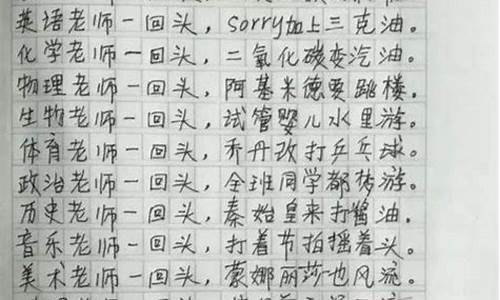 英语老师一回头，sorry加上三克油。
化学老师一回头，二氧化碳变汽油。
物理老师一回头，阿基米德要跳楼。
生物老师一回头，试管婴儿水里游。
体育老师一回头，乔丹改打乒乓球。
政治老师一回头，全班同学都梦游。
历史老师一回头，秦始皇来打酱油。
音乐老师一回头，打着节拍摇着头。
美术老师一回头，蒙娜丽莎也风流。